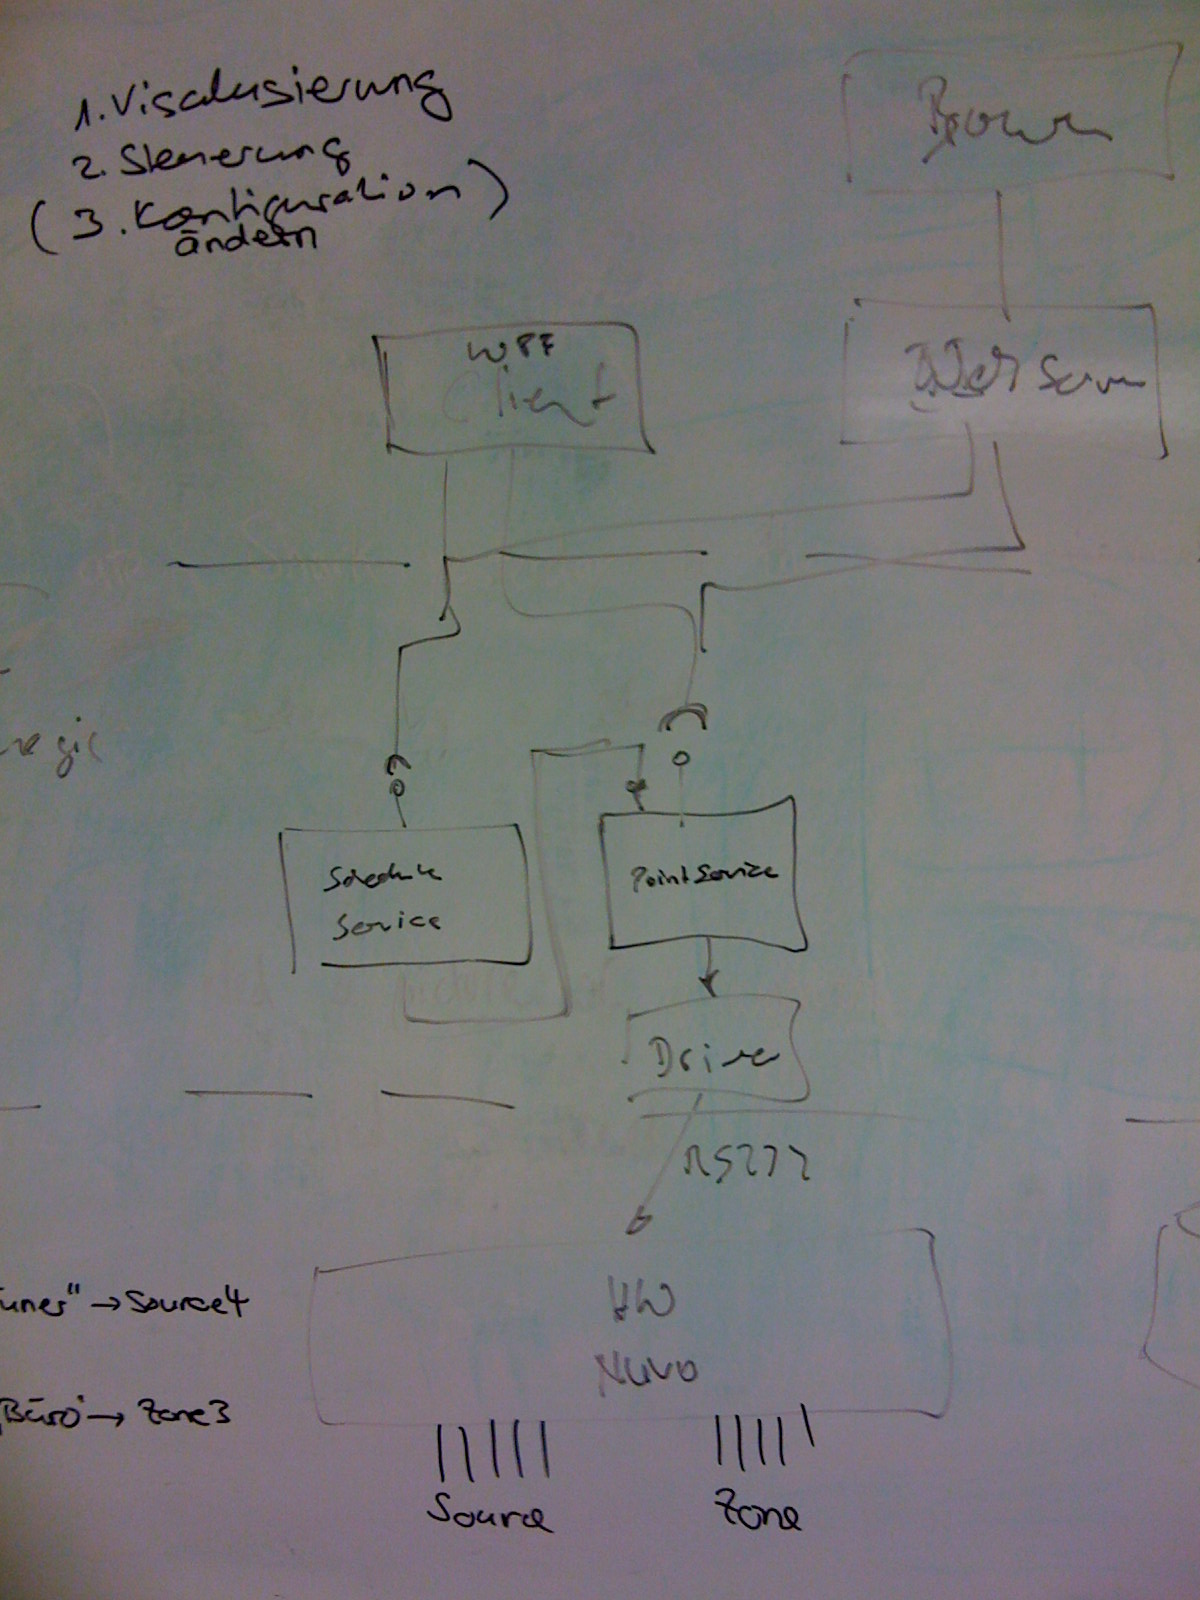 1. Visualisierung
2. Steuerung
(3. Konfiguration)
ändern
Browser
WPF
Client
Web Server
Schedule
Service
PointService
Driver
RS232
HW
Nuvo
uner" → Source4
„Büro" → Zone3
Source
Zone